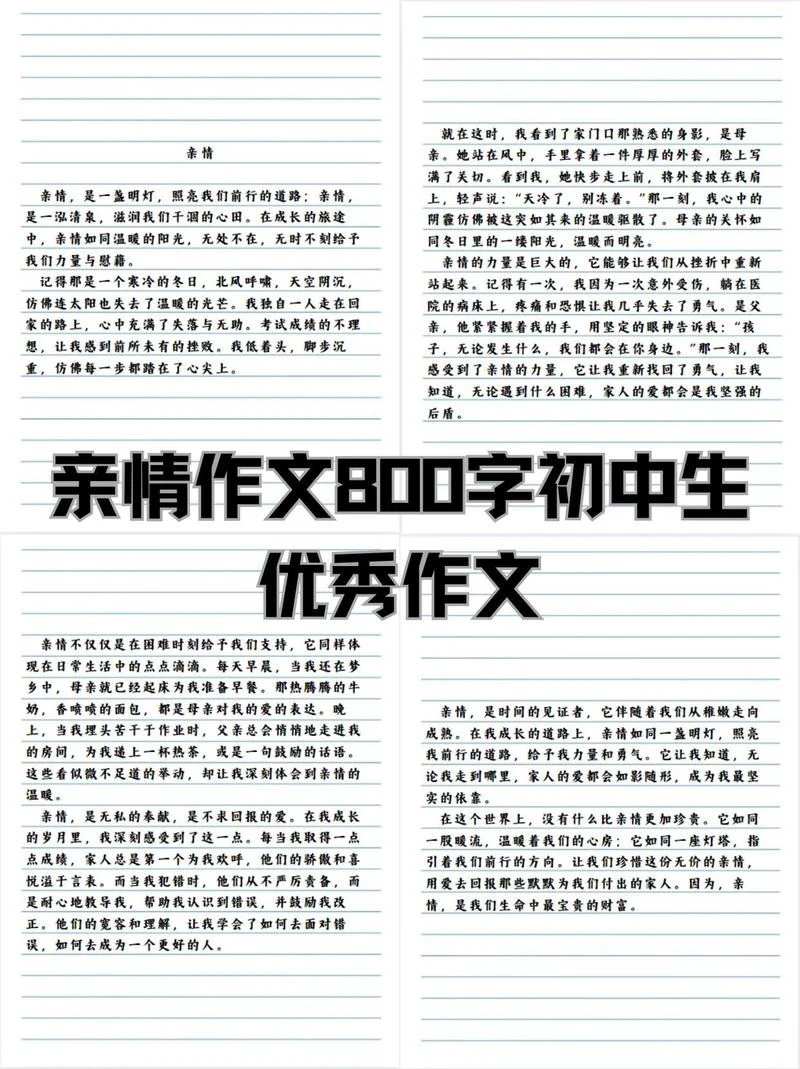 亲情
亲情，是一盏明灯，照亮我们前行的道路；亲情，
是一泓清泉，滋润我们干涸的心田。在成长的旅途
中，亲情如同温暖的阳光，无处不在，无时不刻给予
我们力量与慰藉。
记得那是一个寒冷的冬日，北风呼啸，天空阴沉，
仿佛连太阳也失去了温暖的光芒。我独自一人走在回
家的路上，心中充满了失落与无助。考试成绩的不理
想，让我感到前所未有的挫败。我低着头，脚步沉
重，仿佛每一步都踏在了心尖上。
就在这时，我看到了家门口那熟悉的身影，是母
亲。她站在风中，手里拿着一件厚厚的外套，脸上写
满了关切。看到我，她快步走上前，将外套披在我肩
上，轻声说：“天冷了，别冻着。”那一刻，我心中的
阴霾仿佛被这突如其来的温暖驱散了。母亲的关怀如
同冬日里的一缕阳光，温暖而明亮。
亲情的力量是巨大的，它能够让我们从挫折中重新
站起来。记得有一次，我因为一次意外受伤，躺在医
院的病床上，疼痛和恐惧让我几乎失去了勇气。是父
亲，他紧紧握着我的手，用坚定的眼神告诉我：“孩
子，无论发生什么，我们都会在你身边。”那一刻，我
感受到了亲情的力量，它让我重新找回了勇气，让我
知道，无论遇到什么困难，家人的爱都会是我坚强的
后盾。
亲情作文800字初中生
优秀作文
亲情不仅仅是在困难时刻给予我们支持，它同样体
现在日常生活中的点点滴滴。每天早晨，当我还在梦
乡中，母亲就已经起床为我准备早餐。那热腾腾的牛
奶，香喷喷的面包，都是母亲对我的爱的表达。晚
上，当我埋头苦干于作业时，父亲总会悄悄地走进我
的房间，为我递上一杯热茶，或是一句鼓励的话语。
这些看似微不足道的举动，却让我深刻体会到亲情的
温暖。
亲情，是无私的奉献，是不求回报的爱。在我成长
的岁月里，我深刻感受到了这一点。每当我取得一点
点成绩，家人总是第一个为我欢呼，他们的骄傲和喜
悦溢于言表。而当我犯错时，他们从不严厉责备，而
是耐心地教导我，帮助我认识到错误，并鼓励我改
正。他们的宽容和理解，让我学会了如何去面对错
误，如何去成为一个更好的人。
亲情，是时间的见证者，它伴随着我们从稚嫩走向
成熟。在我成长的道路上，亲情如同一盏明灯，照亮
我前行的道路，给予我力量和勇气。它让我知道，无
论我走到哪里，家人的爱都会如影随形，成为我最坚
实的依靠。
在这个世界上，没有什么比亲情更加珍贵。它如同
一股暖流，温暖着我们的心房；它如同一座灯塔，指
引着我们前行的方向。让我们珍惜这份无价的亲情，
用爱去回报那些默默为我们付出的家人。因为，亲
情，是我们生命中最宝贵的财富。